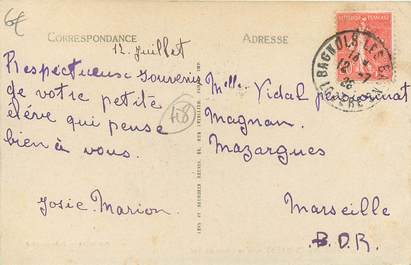 6€
CORRESPONDANCE
ADRESSE
12 Juillet
Respectueux souvenir
de votre petite
élève qui pense
bien à vous.
Josie Marion.
48
Melle Vidal pensionnat
Magnan
Mazargues
Marseille
B.D.R.
BAGNOLS-LES-B
12 -7
26
LOZERE